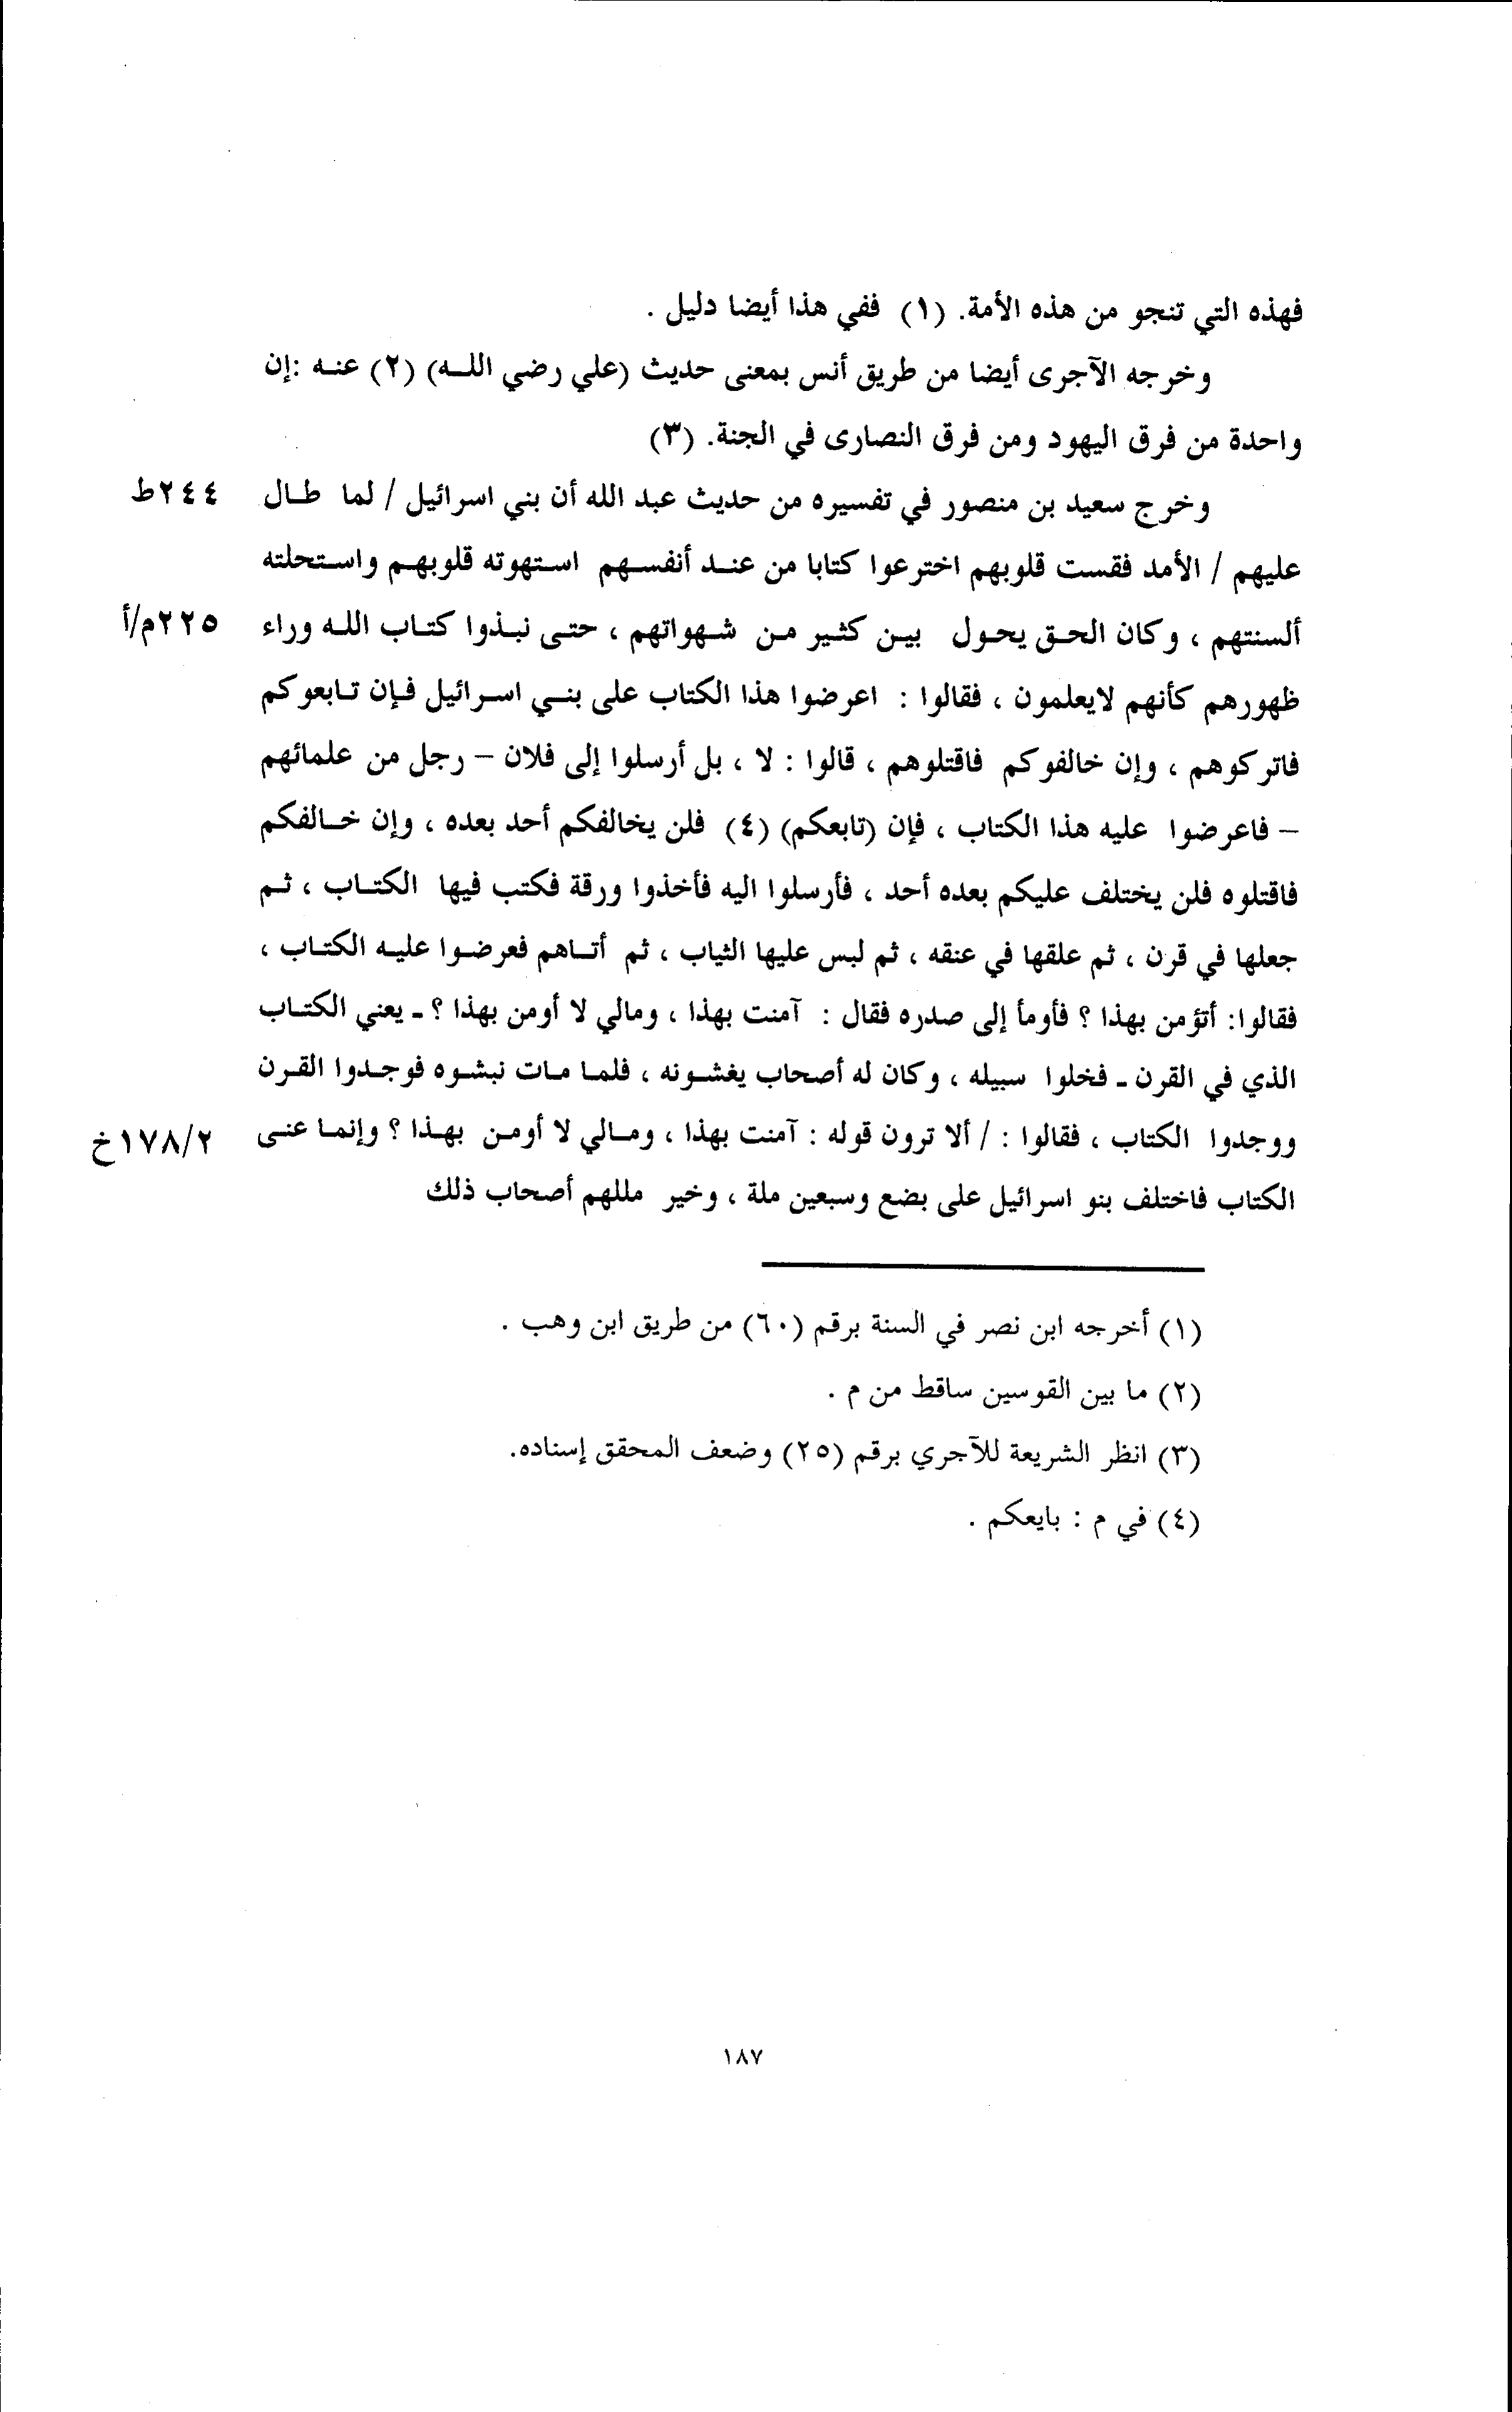 فهذه التي تنجو من هذه الأمة. (١) ففي هذا أيضا دليل .
وخرجه الآجرى أيضا من طريق أنس بمعنى حديث (علي رضي الله) (٢) عنه :إن
واحدة من فرق اليهود ومن فرق النصارى في الجنة. (٣)
وخرج سعيد بن منصور في تفسيره من حديث عبد الله أن بني اسرائيل / لما طال ٢٤٤ط
عليهم / الأمد فقست قلوبهم اخترعوا كتابا من عند أنفسهم استهوته قلوبهم واستحلته
ألسنتهم ، وكان الحق يحول بين كثير من شهواتهم ، حتى نبذوا كتاب الله وراء ٢٢٥م/أ
ظهورهم كأنهم لايعلمون ، فقالوا : اعرضوا هذا الكتاب على بني اسرائيل فإن تابعوكم
فاتركوهم ، وإن خالفوكم فاقتلوهم ، قالوا : لا ، بل أرسلوا إلى فلان – رجل من علمائهم
– فاعرضوا عليه هذا الكتاب ، فإن (تابعكم) (٤) فلن يخالفكم أحد بعده ، وإن خالفكم
فاقتلوه فلن يختلف عليكم بعده أحد ، فأرسلوا اليه فأخذوا ورقة فكتب فيها الكتاب ، ثم
جعلها في قرن ، ثم علقها في عنقه ، ثم لبس عليها الثياب ، ثم أتاهم فعرضوا عليه الكتاب ،
فقالوا: أتؤمن بهذا ؟ فأومأ إلى صدره فقال : آمنت بهذا ، ومالي لا أومن بهذا ؟ - يعني الكتاب
الذي في القرن - فخلوا سبيله ، وكان له أصحاب يغشونه ، فلما مات نبشوه فوجدوا القرن
ووجدوا الكتاب ، فقالوا : / ألا ترون قوله : آمنت بهذا ، ومالي لا أومن بهذا ؟ وإنما عنى ١٧٨/٢خ
الكتاب فاختلف بنو اسرائيل على بضع وسبعين ملة ، وخير مللهم أصحاب ذلك
(١) أخرجه ابن نصر في السنة برقم (٦٠) من طريق ابن وهب .
(٢) ما بين القوسين ساقط من م .
(٣) انظر الشريعة للآجري برقم (٢٥) وضعف المحقق إسناده.
(٤) في م : بايعكم .
١٨٧